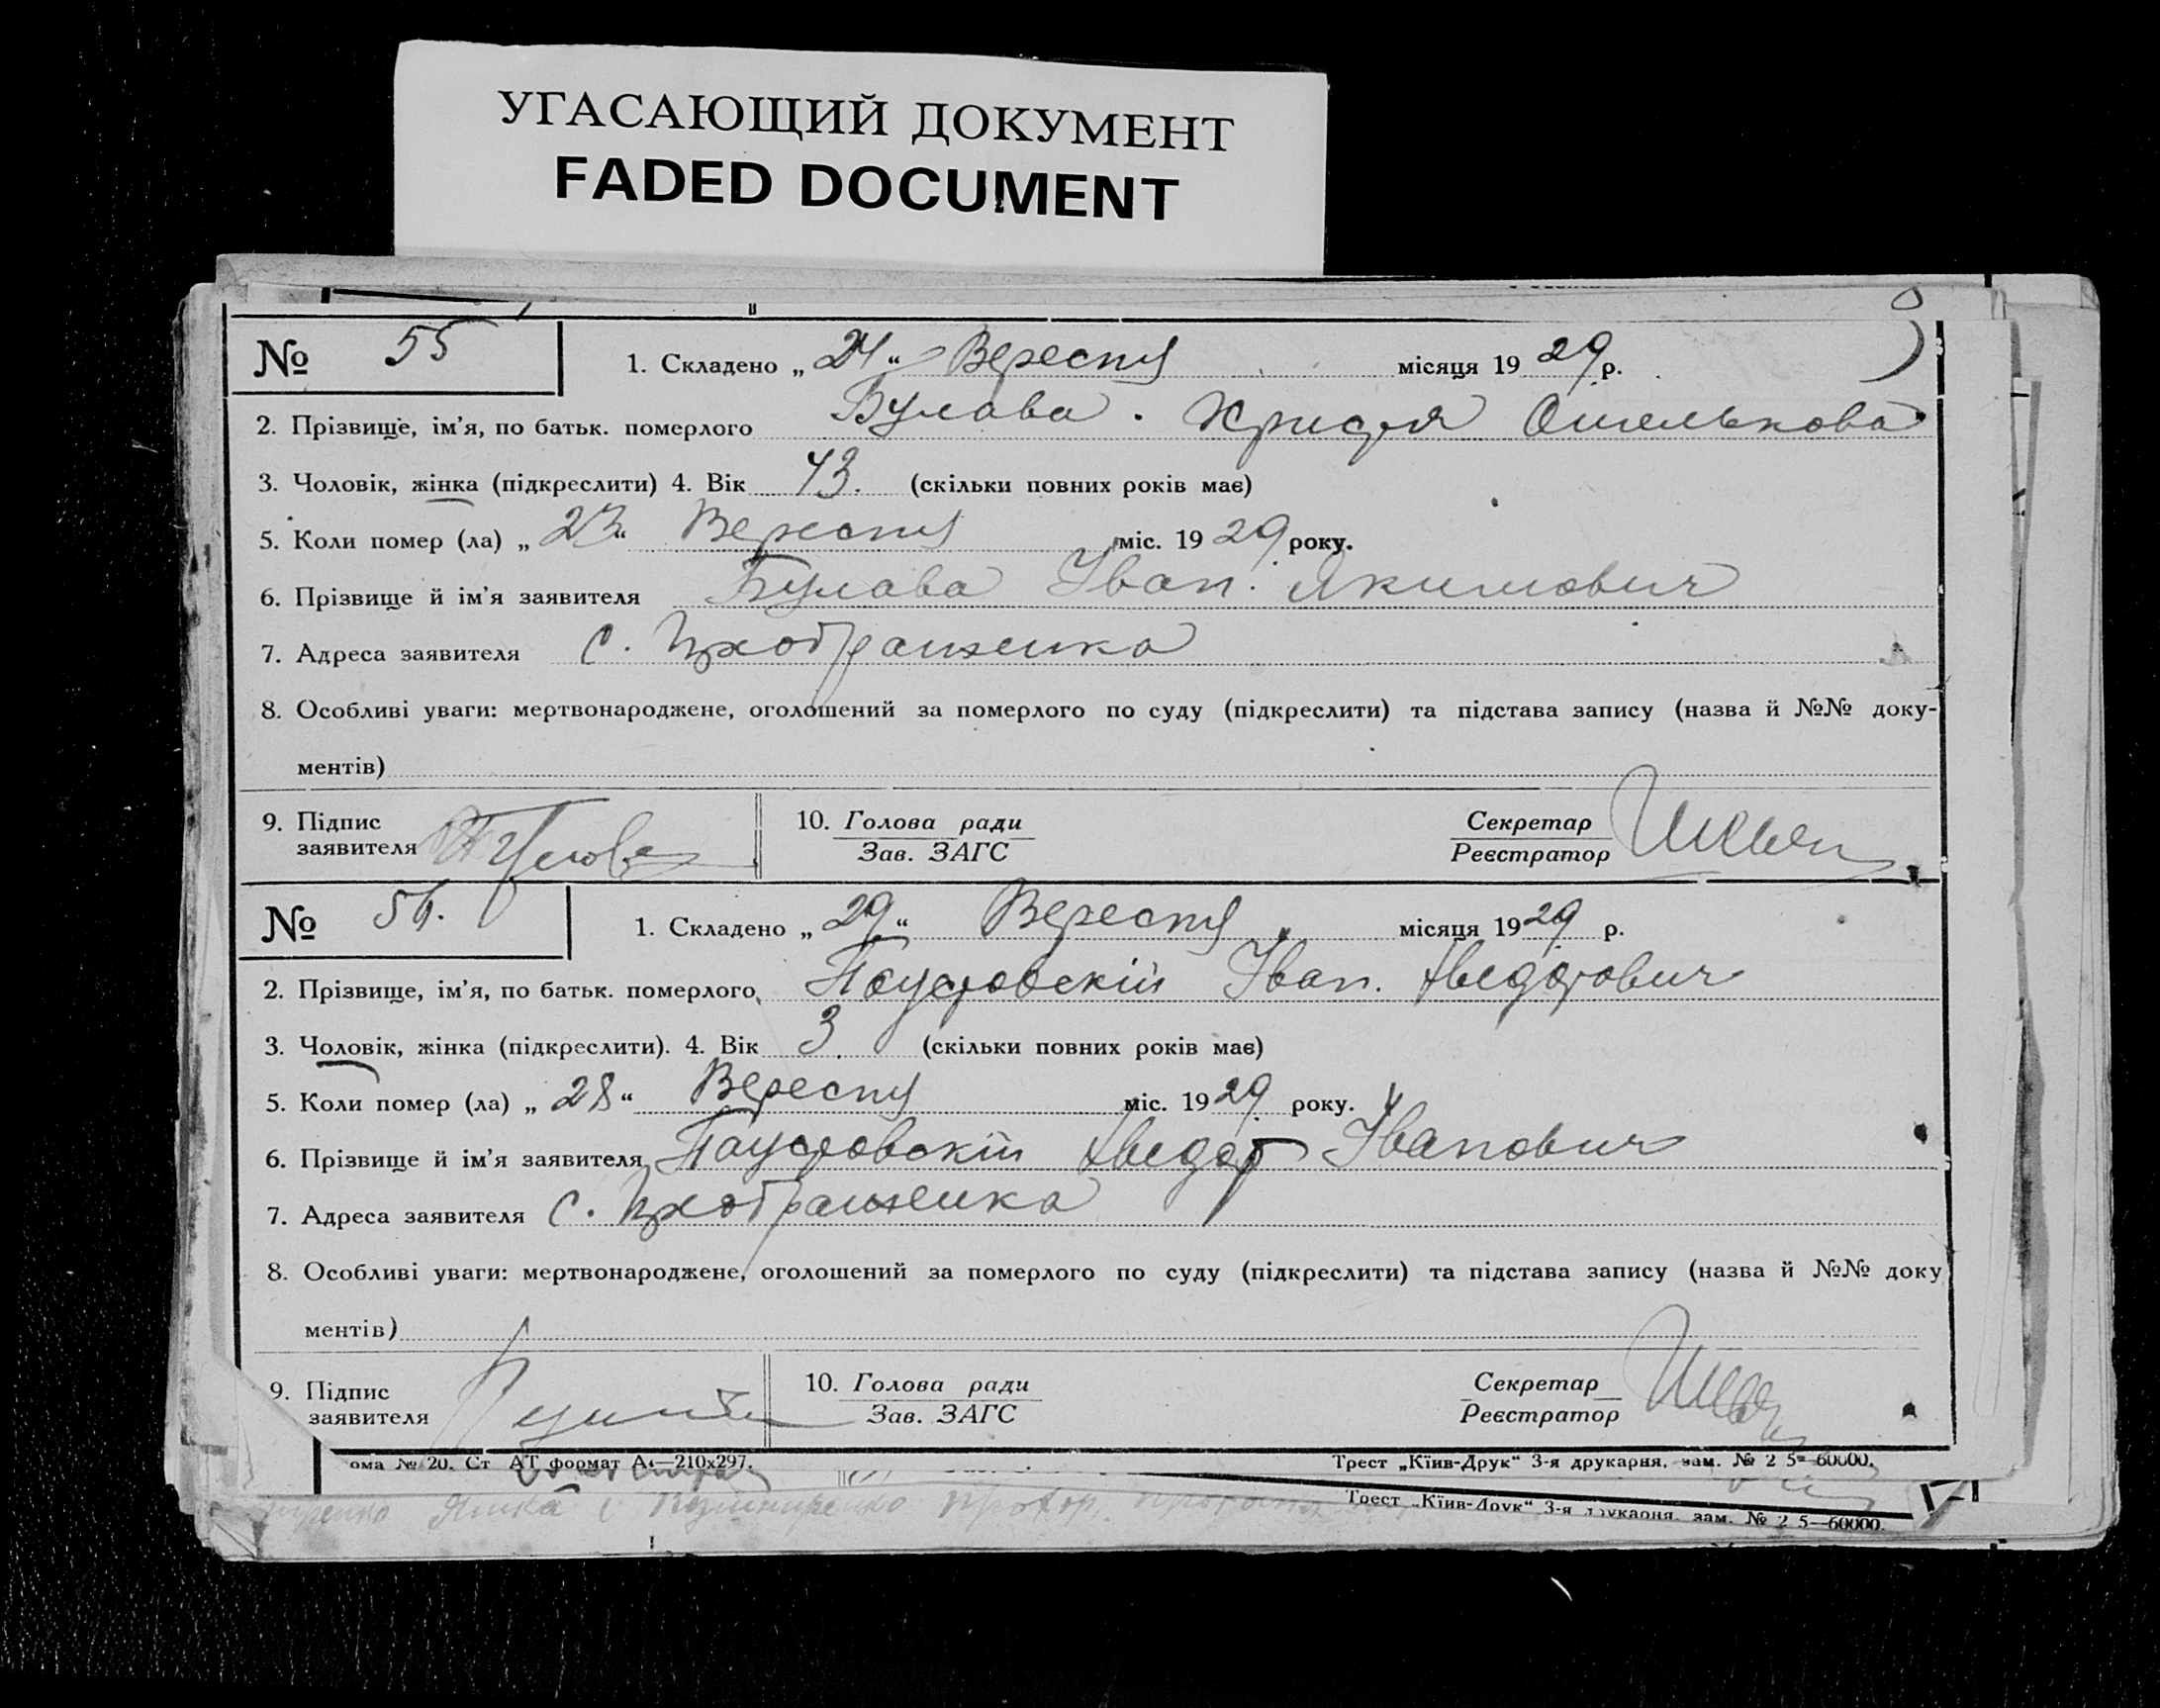 УГАСАЮЩИЙ ДОКУМЕНТ
FADED DOCUMENT
№ 55
1. Складено „24“ Вересня місяця 1929 р.
2. Прізвище, ім'я, по батьк. померлого Булава Христя Омелькова
3. Чоловік, жінка (підкреслити) 4. Вік 43. (скільки повних років має)
5. Коли помер (ла) „23“ Вересня міс. 1929 року.
6. Прізвище й ім'я заявителя Булава Іван. Якимович
7. Адреса заявителя с.
8. Особливі уваги: мертвонароджене, оголошений за померлого по суду (підкреслити) та підстава запису (назва й №№ доку-
ментів)
9. Підпис
заявителя
10. Голова ради
Зав. ЗАГС
Секретар
Реєстратор
№ 56.
1. Складено „29“ Вересня місяця 1929 р.
2. Прізвище, ім'я, по батьк. померлого Паустовскій Іван. Хведотович
3. Чоловік, жінка (підкреслити). 4. Вік 3 (скільки повних років має)
5. Коли помер (ла) „28“ Вересня міс. 1929 року.
6. Прізвище й ім'я заявителя Паустовскій Хведот Іванович
7. Адреса заявителя с.
8. Особливі уваги: мертвонароджене, оголошений за померлого по суду (підкреслити) та підстава запису (назва й №№ доку
ментів)
9. Підпис
заявителя
10. Голова ради
Зав. ЗАГС
Секретар
Реєстратор
ома № 20. Ст АТ формат А4—210х297.
Трест „Київ-Друк“ 3-я друкарня, зам. № 2 5—60000.
Трест „Київ-Друк“ 3-я друкарня, зам. № 2 5—60000.